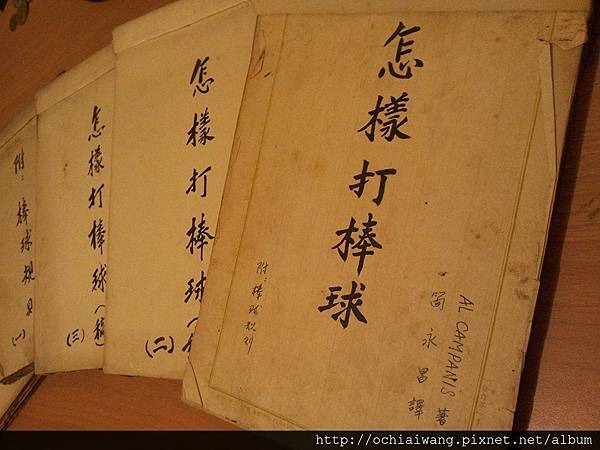 怎樣打棒球
AL CAMPANIS 著
简永昌 譯
附：棒球規則
怎樣打棒球（稿）
（二）
怎樣打棒球（稿）
（三）
附：棒球規則
（一）
http://ochiaiwang.pixnet.net/album